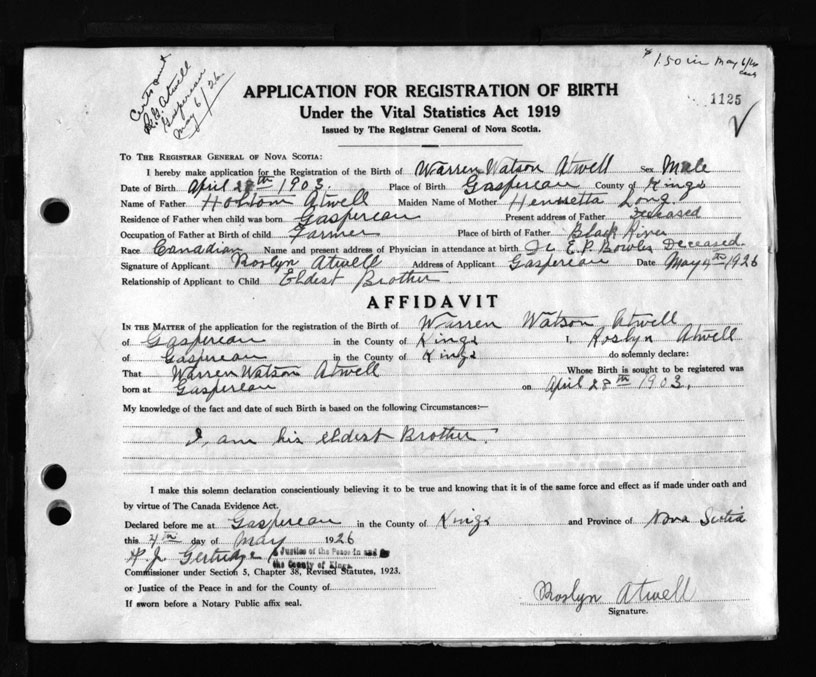 $1.50 in May 6/26
Certs sent
R.V. Atwell
Gaspereau
May 6/26
APPLICATION FOR REGISTRATION OF BIRTH
Under the Vital Statistics Act 1919
Issued by The Registrar General of Nova Scotia.
1125
TO THE REGISTRAR GENERAL OF NOVA SCOTIA:
I hereby make application for the Registration of the Birth of Warren Watson Atwell Sex Male
Date of Birth April 28th 1903. Place of Birth Gaspereau County of Kings
Name of Father Atwell Maiden Name of Mother Henrietta Long
Residence of Father when child was born Gaspereau Present address of Father Deceased
Occupation of Father at Birth of child Farmer Place of birth of Father Black River
Race Canadian Name and present address of Physician in attendance at birth Dr. E.P. Bowles Deceased.
Signature of Applicant Roslyn Atwell Address of Applicant Gaspereau Date May 4th 1926
Relationship of Applicant to Child Eldest Brother
AFFIDAVIT
IN THE MATTER of the application for the registration of the Birth of Warren Watson Atwell
of Gaspereau in the County of Kings I, Roslyn Atwell
of Gaspereau in the County of Kings do solemnly declare:
That Warren Watson Atwell Whose Birth is sought to be registered was
born at Gaspereau on April 28th 1903.
My knowledge of the fact and date of such Birth is based on the following Circumstances:—
I, am his eldest Brother.
I make this solemn declaration conscientiously believing it to be true and knowing that it is of the same force and effect as if made under oath and
by virtue of The Canada Evidence Act.
Declared before me at Gaspereau in the County of Kings and Province of Nova Scotia
this 4th day of May 1926
A Justice of the Peace in and for
the County of Kings.
Commissioner under Section 5, Chapter 38, Revised Statutes, 1923.
or Justice of the Peace in and for the County of
If sworn before a Notary Public affix seal.
Roslyn Atwell
Signature.